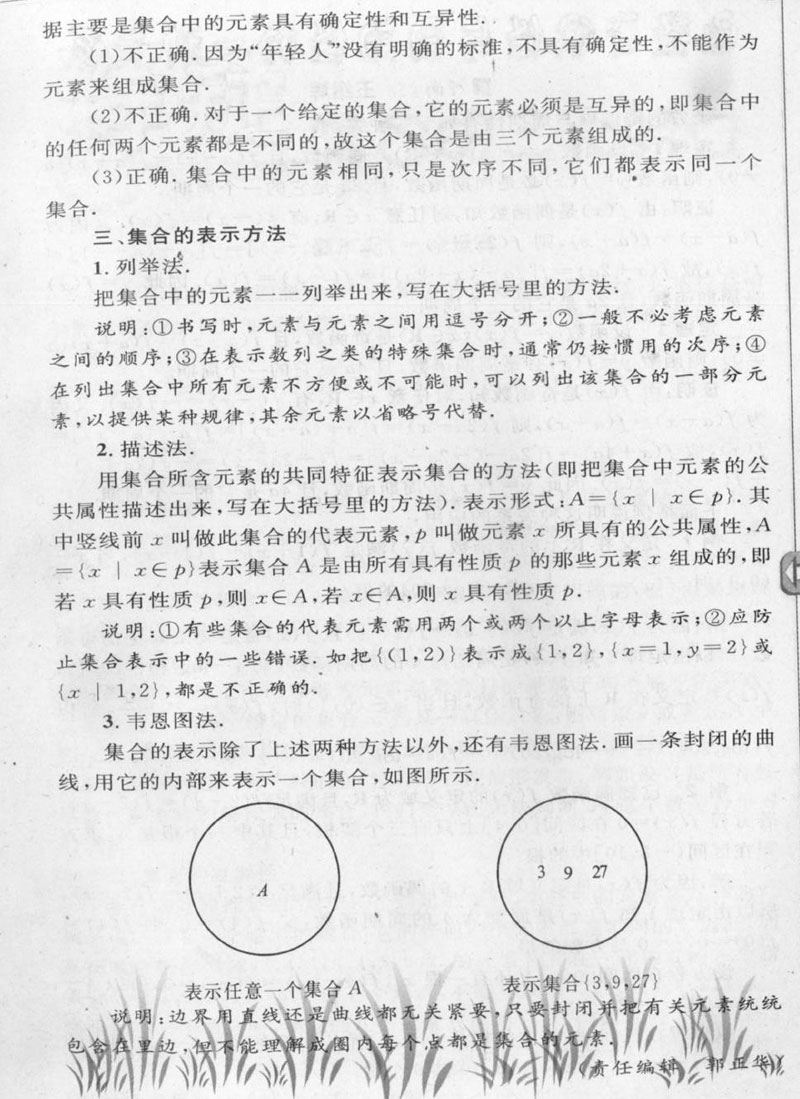 据主要是集合中的元素具有确定性和互异性.
(1)不正确.因为“年轻人”没有明确的标准,不具有确定性,不能作为
元素来组成集合.
(2)不正确.对于一个给定的集合,它的元素必须是互异的,即集合中
的任何两个元素都是不同的,故这个集合是由三个元素组成的.
(3)正确.集合中的元素相同,只是次序不同,它们都表示同一个
集合.
三、集合的表示方法
1.列举法.
把集合中的元素一一列举出来,写在大括号里的方法.
说明:①书写时,元素与元素之间用逗号分开;②一般不必考虑元素
之间的顺序;③在表示数列之类的特殊集合时,通常仍按惯用的次序;④
在列出集合中所有元素不方便或不可能时,可以列出该集合的一部分元
素,以提供某种规律,其余元素以省略号代替.
2.描述法.
用集合所含元素的共同特征表示集合的方法(即把集合中元素的公
共属性描述出来,写在大括号里的方法).表示形式:A={x | x∈p}.其
中竖线前 x 叫做此集合的代表元素,p 叫做元素 x 所具有的公共属性,A
={x | x∈p}表示集合 A 是由所有具有性质 p 的那些元素 x 组成的,即
若 x 具有性质 p,则 x∈A,若 x∈A,则 x 具有性质 p.
说明:①有些集合的代表元素需用两个或两个以上字母表示;②应防
止集合表示中的一些错误.如把{(1,2)}表示成{1,2},{x=1,y=2}或
{x | 1,2},都是不正确的.
3.韦恩图法.
集合的表示除了上述两种方法以外,还有韦恩图法.画一条封闭的曲
线,用它的内部来表示一个集合,如图所示.
A
3 9 27
表示任意一个集合 A
表示集合{3,9,27}
说明:边界用直线还是曲线都无关紧要,只要封闭并把有关元素统统
包含在里边,但不能理解成圈内每个点都是集合的元素.
(责任编辑 郭正华)